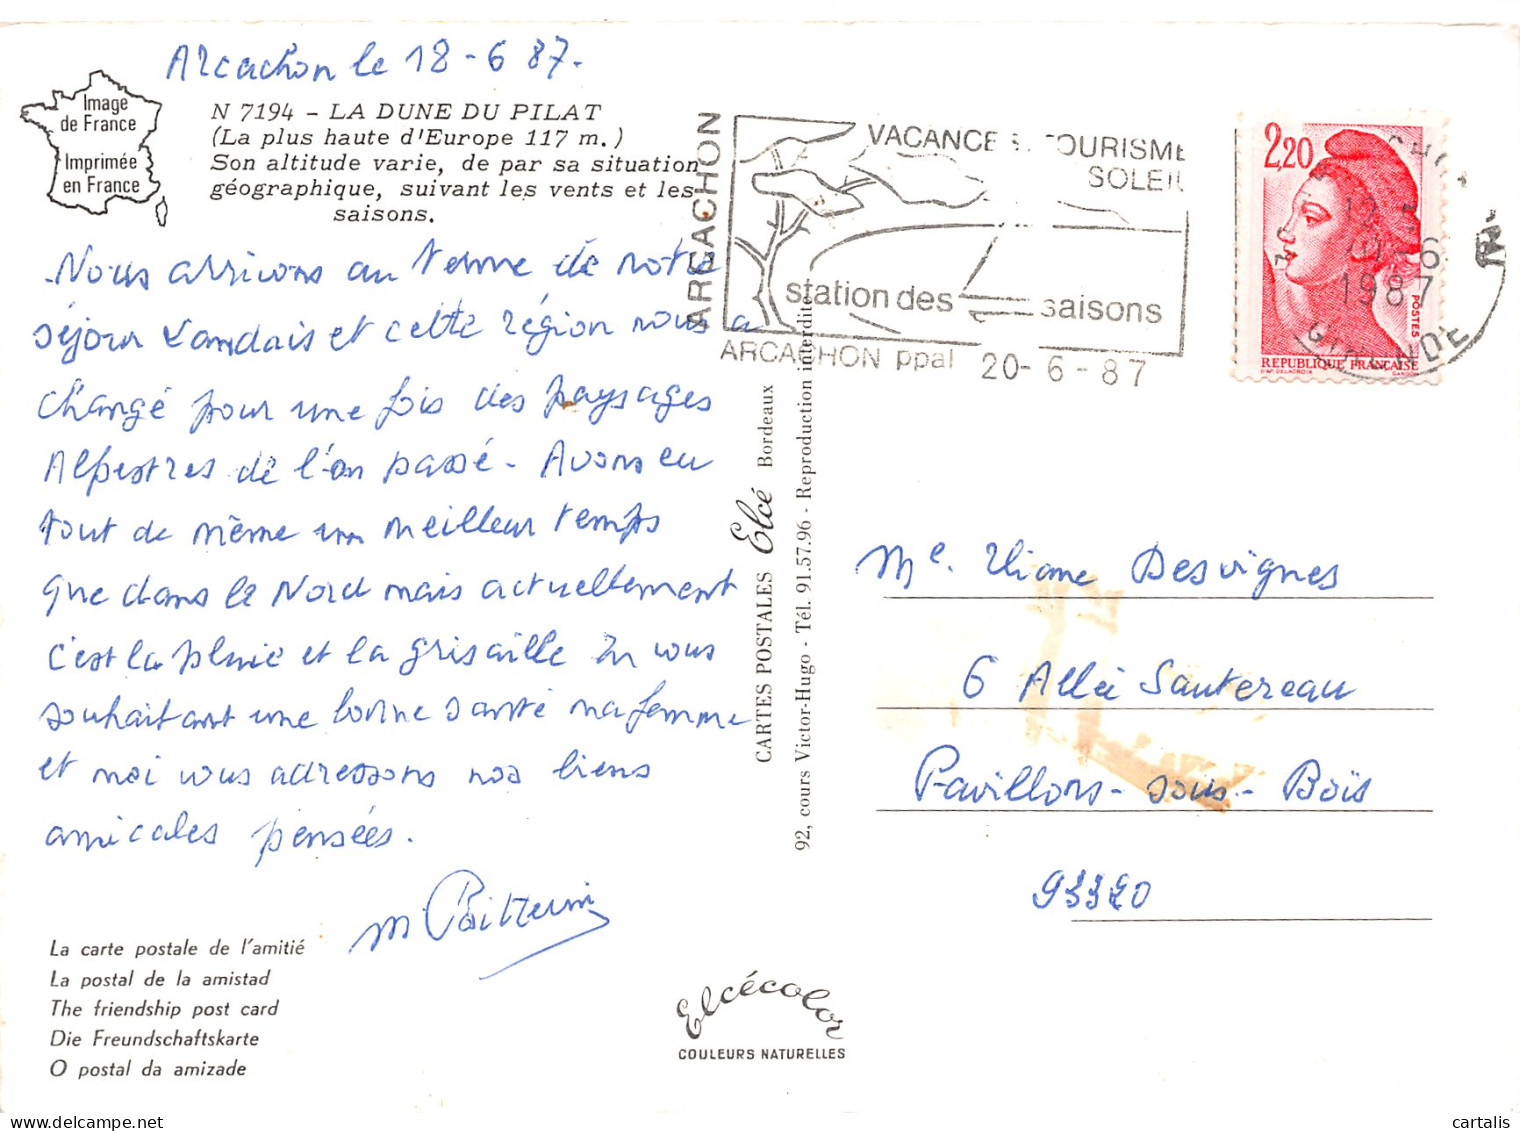 Arcachon le 18-6 87.
Image
de France
Imprimée
en France
N 7194 - LA DUNE DU PILAT
(La plus haute d'Europe 117 m.)
Son altitude varie, de par sa situation
géographique, suivant les vents et les
saisons.
Nous arrivons au terme de notre
séjour Landais et cette région nous a
changé pour une fois des paysages
Alpestres de l'an passé - Avons eu
tout de même un meilleur temps
que dans le Nord mais actuellement
c'est la pluie et la grisaille En vous
souhaitant une bonne santé ma femme
et moi vous adressons nos biens
amicales pensées.
La carte postale de l'amitié
La postal de la amistad
The friendship post card
Die Freundschaftskarte
O postal da amizade
ARCACHON
VACANCES TOURISME
SOLEIL
station des saisons
ARCACHON ppal 20-6-87
CARTES POSTALES Elcé Bordeaux
92, cours Victor-Hugo - Tél. 91.57.96 - Reproduction interdite
Elcécolor
COULEURS NATURELLES
2,20
POSTES
REPUBLIQUE FRANÇAISE
D'AP. DELACROIX GANDON
1987
GIRONDE
Me. Eliane Desvignes
6 Allée Sautereau
Pavillons-sous-Bois
93320
cartalis